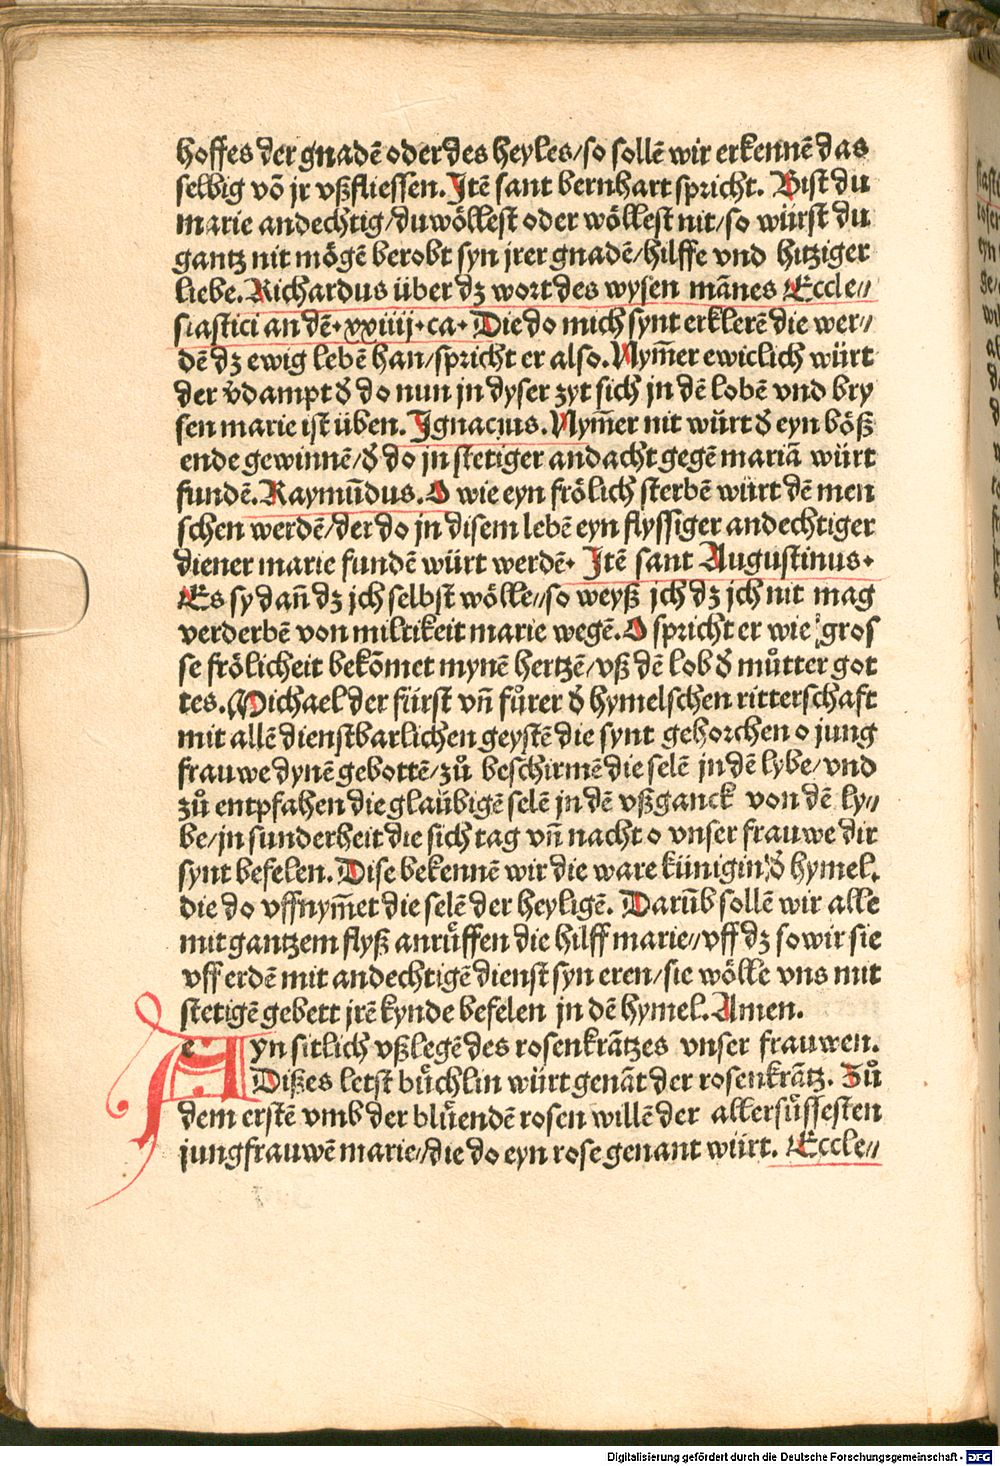 hoffes der gnadē oder des heyles/so sollē wir erkennē das
selbig vō jr vßfliessen. Itē sant bernhart spricht. Bist du
marie andechtig/du wöllest oder wöllest nit/so würst du
gantz nit mögē berobt syn jrer gnadē/hilffe vnd hitziger
liebe. Richardus über dz wort des wysen mānes Eccle⸗
siastici an dē. xxiiij. ca. Die do mich synt erklerē die wer⸗
dē dz ewig lebē han/spricht er also. Nym̄er ewiclich würt
der v̄dampt d̄ do nun jn dyser zyt sich jn dē lobē vnd bry
sen marie ist üben. Ignacius. Nym̄er nit würt d̄ eyn böß
ende gewinnē/d̄ do jn stetiger andacht gegē mariā würt
fundē. Raymūdus. O wie eyn frölich sterbē würt dē men
schen werdē/der do jn disem lebē eyn flyssiger andechtiger
diener marie fundē würt werdē. Itē sant Augustinus.
Es sy dañ dz jch selbst wölle⸗so weyß jch dz jch nit mag
verderbē von miltikeit marie wegē. O spricht er wie gros
se frölicheit bekōmet mynē hertzē/vß dē lob d̄ můtter got
tes. Michael der fürst vñ fůrer d̄ hymelschen ritterschaft
mit allē dienstbarlichen geystē die synt gehorchen o jung
frauwe dynē gebottē/zů beschirmē die selē jn dē lybe/vnd
zů entpfahen die glaübigē selē jn dē vßganck von dē ly⸗
be/jn sunderheit die sich tag vñ nacht o vnser frauwe dir
synt befelen. Dise bekennē wir die ware künigin d̄ hymel.
die do vffnym̄et die selē der heyligē. Darūb sollē wir alle
mit gantzem flyß anrüffen die hilff marie⸗vff dz so wir sie
vff erdē mit andechtigē dienst syn eren/sie wölle vns mit
stetigē gebett jrē kynde befelen jn dē hymel. Amen.
Ayn sitlich vßlegē des rosenkrātzes vnser frauwen.
Dißes letst büchlin würt genāt der rosenkrātz. Zů
dem erstē vmb der blüendē rosen willē der allersüssesten
jungfrauwē marie⸗die do eyn rose genant würt. Eccle⸗
Digitalisierung gefördert durch die Deutsche Forschungsgemeinschaft - DFG